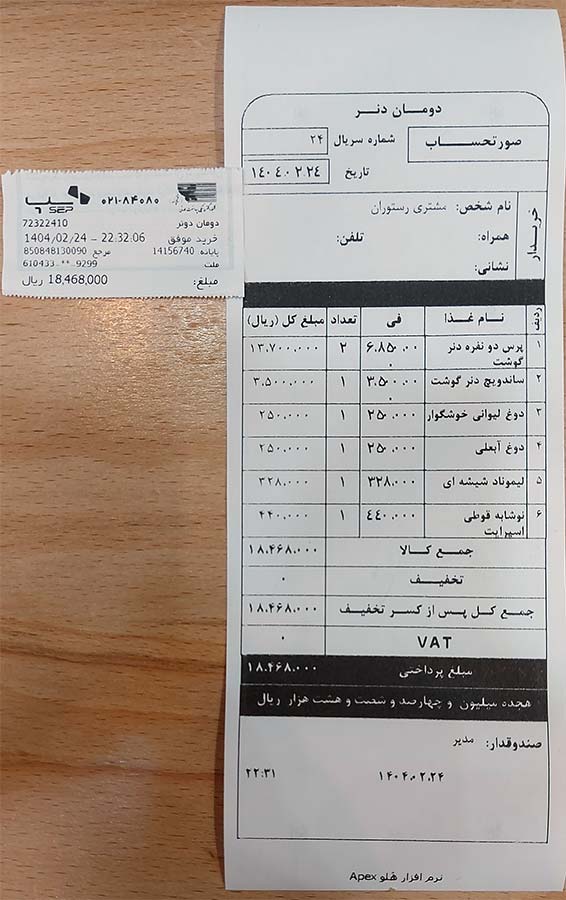 دومان دنر
صورتحساب
شماره سریال ۲۴
تاریخ ۱۴۰۴.۰۲.۲۴
خریدار
نام شخص: مشتری رستوران
همراه: تلفن:
نشانی:
ردیف نام غذا فی تعداد مبلغ کل (ریال)
۱ پرس دو نفره دنر گوشت ۶.۸۵۰.۰۰۰ ۲ ۱۳.۷۰۰.۰۰۰
۲ ساندویچ دنر گوشت ۳.۵۰۰.۰۰۰ ۱ ۳.۵۰۰.۰۰۰
۳ دوغ لیوانی خوشگوار ۲۵۰.۰۰۰ ۱ ۲۵۰.۰۰۰
۴ دوغ آبعلی ۲۵۰.۰۰۰ ۱ ۲۵۰.۰۰۰
۵ لیموناد شیشه ای ۳۲۸.۰۰۰ ۱ ۳۲۸.۰۰۰
۶ نوشابه قوطی اسپرایت ۴۴۰.۰۰۰ ۱ ۴۴۰.۰۰۰
جمع کالا ۱۸.۴۶۸.۰۰۰
تخفیف ۰
جمع کل پس از کسر تخفیف ۱۸.۴۶۸.۰۰۰
VAT ۰
مبلغ پرداختی ۱۸.۴۶۸.۰۰۰
هجده میلیون و چهارصد و شصت و هشت هزار ریال
صندوقدار: مدیر
۱۴۰۴.۰۲.۲۴ ۲۲:۳۱
نرم افزار هلو Apex
۰۲۱-۸۴۰۸۰
سپ
SEP
دومان دونر 72322410
خرید موفق 1404/02/24 – 22:32:06
پایانه: 14156740 مرجع 850848130090
ملت 610433-**-9299
مبلغ: 18,468,000 ریال